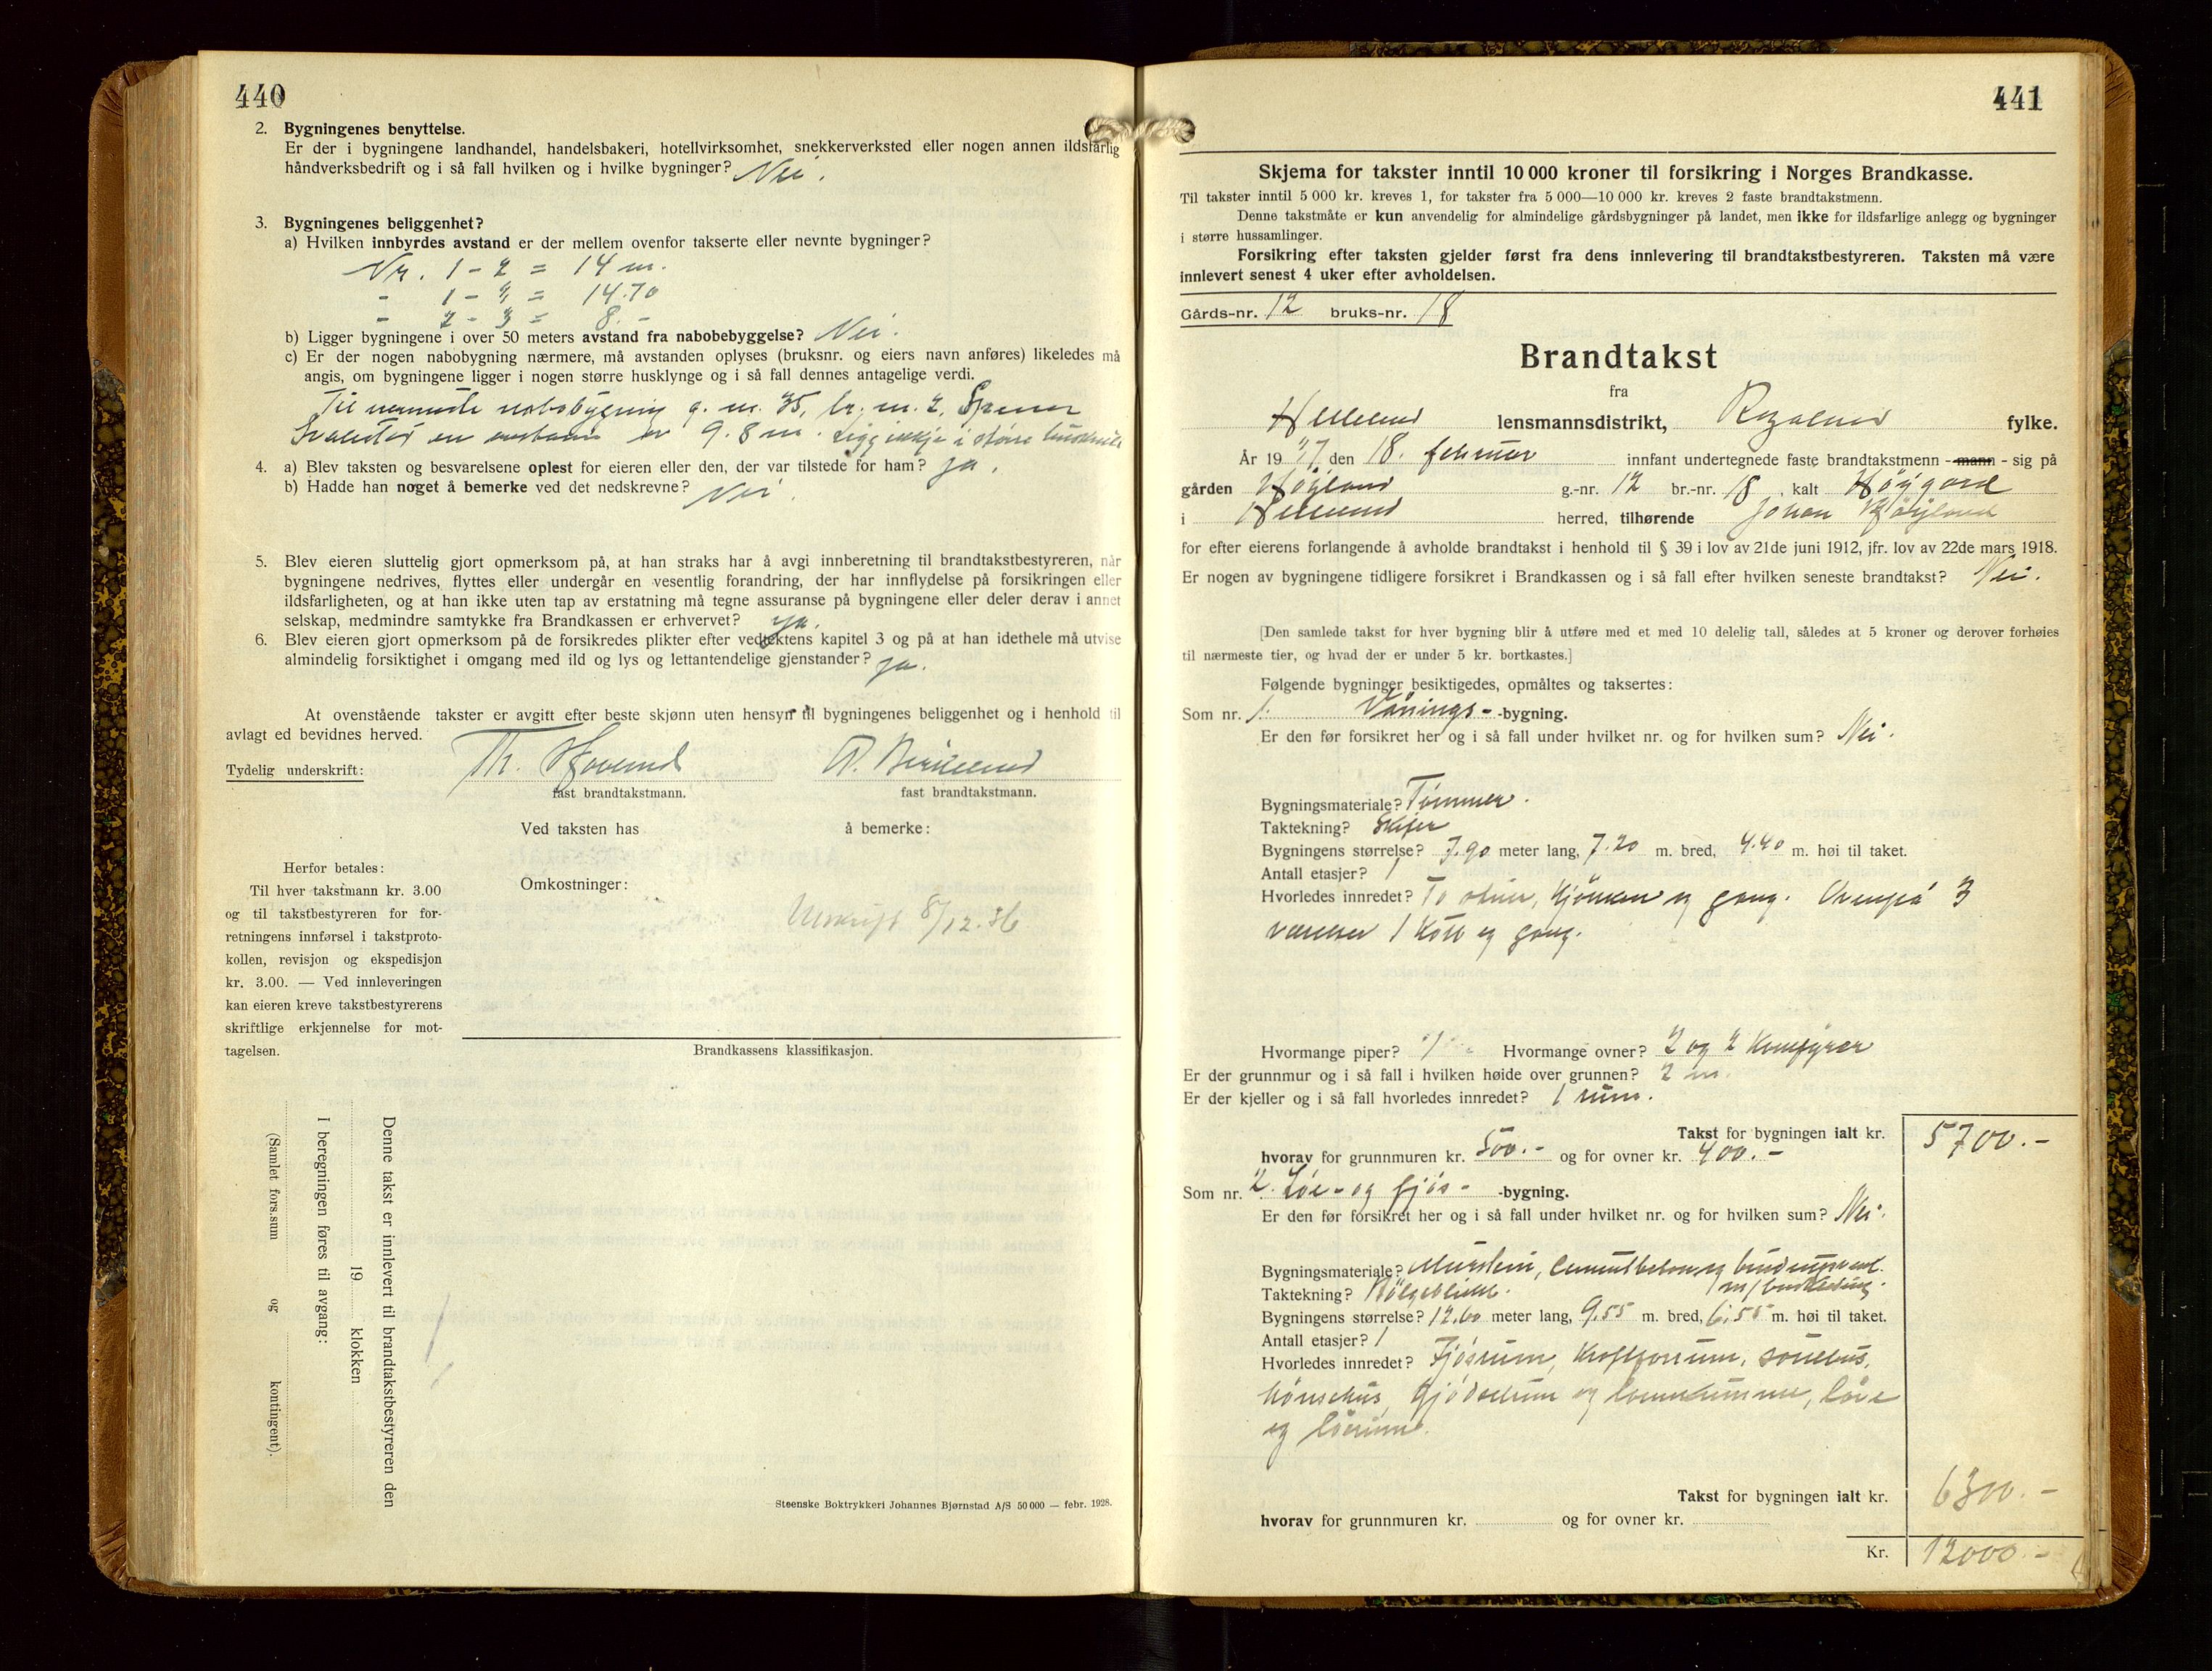 440
2. Bygningenes benyttelse.
Er der i bygningene landhandel, handelsbakeri, hotellvirksomhet, snekkerverksted eller nogen annen ildsfarlig
håndverksbedrift og i så fall hvilken og i hvilke bygninger? Nei.
3. Bygningenes beliggenhet?
a) Hvilken innbyrdes avstand er der mellem ovenfor takserte eller nevnte bygninger?
Nr. 1 - 2 = 14 m.
- 1 - = 14.70
- 2 - 3 = 8. -
b) Ligger bygningene i over 50 meters avstand fra nabobebyggelse? Nei.
c) Er der nogen nabobygning nærmere, må avstanden oplyses (bruksnr. og eiers navn anføres) likeledes må
angis, om bygningene ligger i nogen større husklynge og i så fall dennes antagelige verdi.
Til nabobygning g. nr. 35, br. nr. 2,
9.8 m. i større
4. a) Blev taksten og besvarelsene oplest for eieren eller den, der var tilstede for ham? ja.
b) Hadde han noget å bemerke ved det nedskrevne? Nei.
5. Blev eieren sluttelig gjort opmerksom på, at han straks har å avgi innberetning til brandtakstbestyreren, når
bygningene nedrives, flyttes eller undergår en vesentlig forandring, der har innflydelse på forsikringen eller
ildsfarligheten, og at han ikke uten tap av erstatning må tegne assuranse på bygningene eller deler derav i annet
selskap, medmindre samtykke fra Brandkassen er erhvervet? ja.
6. Blev eieren gjort opmerksom på de forsikredes plikter efter vedtektens kapitel 3 og på at han idethele må utvise
almindelig forsiktighet i omgang med ild og lys og lettantendelige gjenstander? ja.
At ovenstående takster er avgitt efter beste skjønn uten hensyn til bygningenes beliggenhet og i henhold til
avlagt ed bevidnes herved.
Tydelig underskrift: Th.
fast brandtakstmann. fast brandtakstmann.
Ved taksten has å bemerke:
Herfor betales:
Til hver takstmann kr. 3.00
og til takstbestyreren for for-
retningens innførsel i takstproto-
kollen, revisjon og ekspedisjon
kr. 3.00. — Ved innleveringen
kan eieren kreve takstbestyrerens
skriftlige erkjennelse for mot-
tagelsen.
Omkostninger:
Utskrift 8/12.36
Brandkassens klassifikasjon.
Denne takst er innlevert til brandtakstbestyreren den
19 klokken
I beregningen føres til avgang:
(Samlet fors.sum og kontingent).
Steenske Boktrykkeri Johannes Bjørnstad A/S 50 000 — febr. 1928.
441
Skjema for takster inntil 10 000 kroner til forsikring i Norges Brandkasse.
Til takster inntil 5 000 kr. kreves 1, for takster fra 5 000—10 000 kr. kreves 2 faste brandtakstmenn.
Denne takstmåte er kun anvendelig for almindelige gårdsbygninger på landet, men ikke for ildsfarlige anlegg og bygninger
i større hussamlinger.
Forsikring efter taksten gjelder først fra dens innlevering til brandtakstbestyreren. Taksten må være
innlevert senest 4 uker efter avholdelsen.
Gårds-nr. 12 bruks-nr. 18
Brandtakst
fra
Helleland lensmannsdistrikt, Rogaland fylke.
År 19 den 18. februar innfant undertegnede faste brandtakstmenn - mann - sig på
gården Høyland g.-nr. 12 br.-nr. 18, kalt Høygard
i Helleland herred, tilhørende Johan Høyland
for efter eierens forlangende å avholde brandtakst i henhold til § 39 i lov av 21de juni 1912, jfr. lov av 22de mars 1918.
Er nogen av bygningene tidligere forsikret i Brandkassen og i så fall efter hvilken seneste brandtakst? Nei.
[Den samlede takst for hver bygning blir å utføre med et med 10 delelig tall, således at 5 kroner og derover forhøies
til nærmeste tier, og hvad der er under 5 kr. bortkastes.]
Følgende bygninger besiktigedes, opmåltes og taksertes:
Som nr. 1. Vånings- -bygning.
Er den før forsikret her og i så fall under hvilket nr. og for hvilken sum? Nei.
Bygningsmateriale? Tømmer.
Taktekning? Skifer
Bygningens størrelse? 7.90 meter lang, 7.20 m. bred, 4.40 m. høi til taket.
Antall etasjer? 1
Hvorledes innredet? To stuer, kjøkken og gang. Ovenpå 3
værelser 1 kott og gang.
Hvormange piper? 1 Hvormange ovner? 2 og 2 komfyrer
Er der grunnmur og i så fall i hvilken høide over grunnen? 2 m.
Er der kjeller og i så fall hvorledes innredet? 1 rum.
Takst for bygningen ialt kr. 5700.-
hvorav for grunnmuren kr. 500.- og for ovner kr. 400.-
Som nr. 2. Løe- og fjøs- -bygning.
Er den før forsikret her og i så fall under hvilket nr. og for hvilken sum? Nei.
Bygningsmateriale? Murstein, cementbetong og
Taktekning? Bølgeblikk.
Bygningens størrelse? 12.60 meter lang, 9.55 m. bred, 6.55 m. høi til taket.
Antall etasjer? 1
Hvorledes innredet? Fjøsrum, kraftforrum,
hønsehus, gjødselrum og løe
og løerum.
Takst for bygningen ialt kr. 6300.-
hvorav for grunnmuren kr. og for ovner kr.
Kr. 12000.-